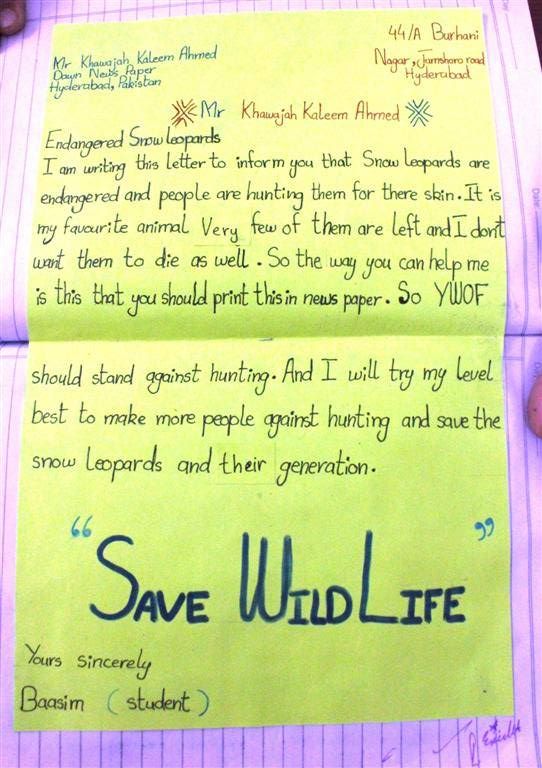 44/A Burhani
Nagar, Jamshoro road
Hyderabad
Mr Khawajah Kaleem Ahmed
Dawn News Paper
Hyderabad, Pakistan
Mr Khawajah Kaleem Ahmed
Endangered Snow leopards
I am writing this letter to inform you that Snow leopards are
endangered and people are hunting them for there skin. It is
my favourite animal Very few of them are left and I don't
want them to die as well. So the way you can help me
is this that you should print this in news paper. So YWOF
should stand against hunting. And I will try my level
best to make more people against hunting and save the
snow leopards and their generation.
"SAVE WILD LIFE"
Yours sincerely
Baasim (student)